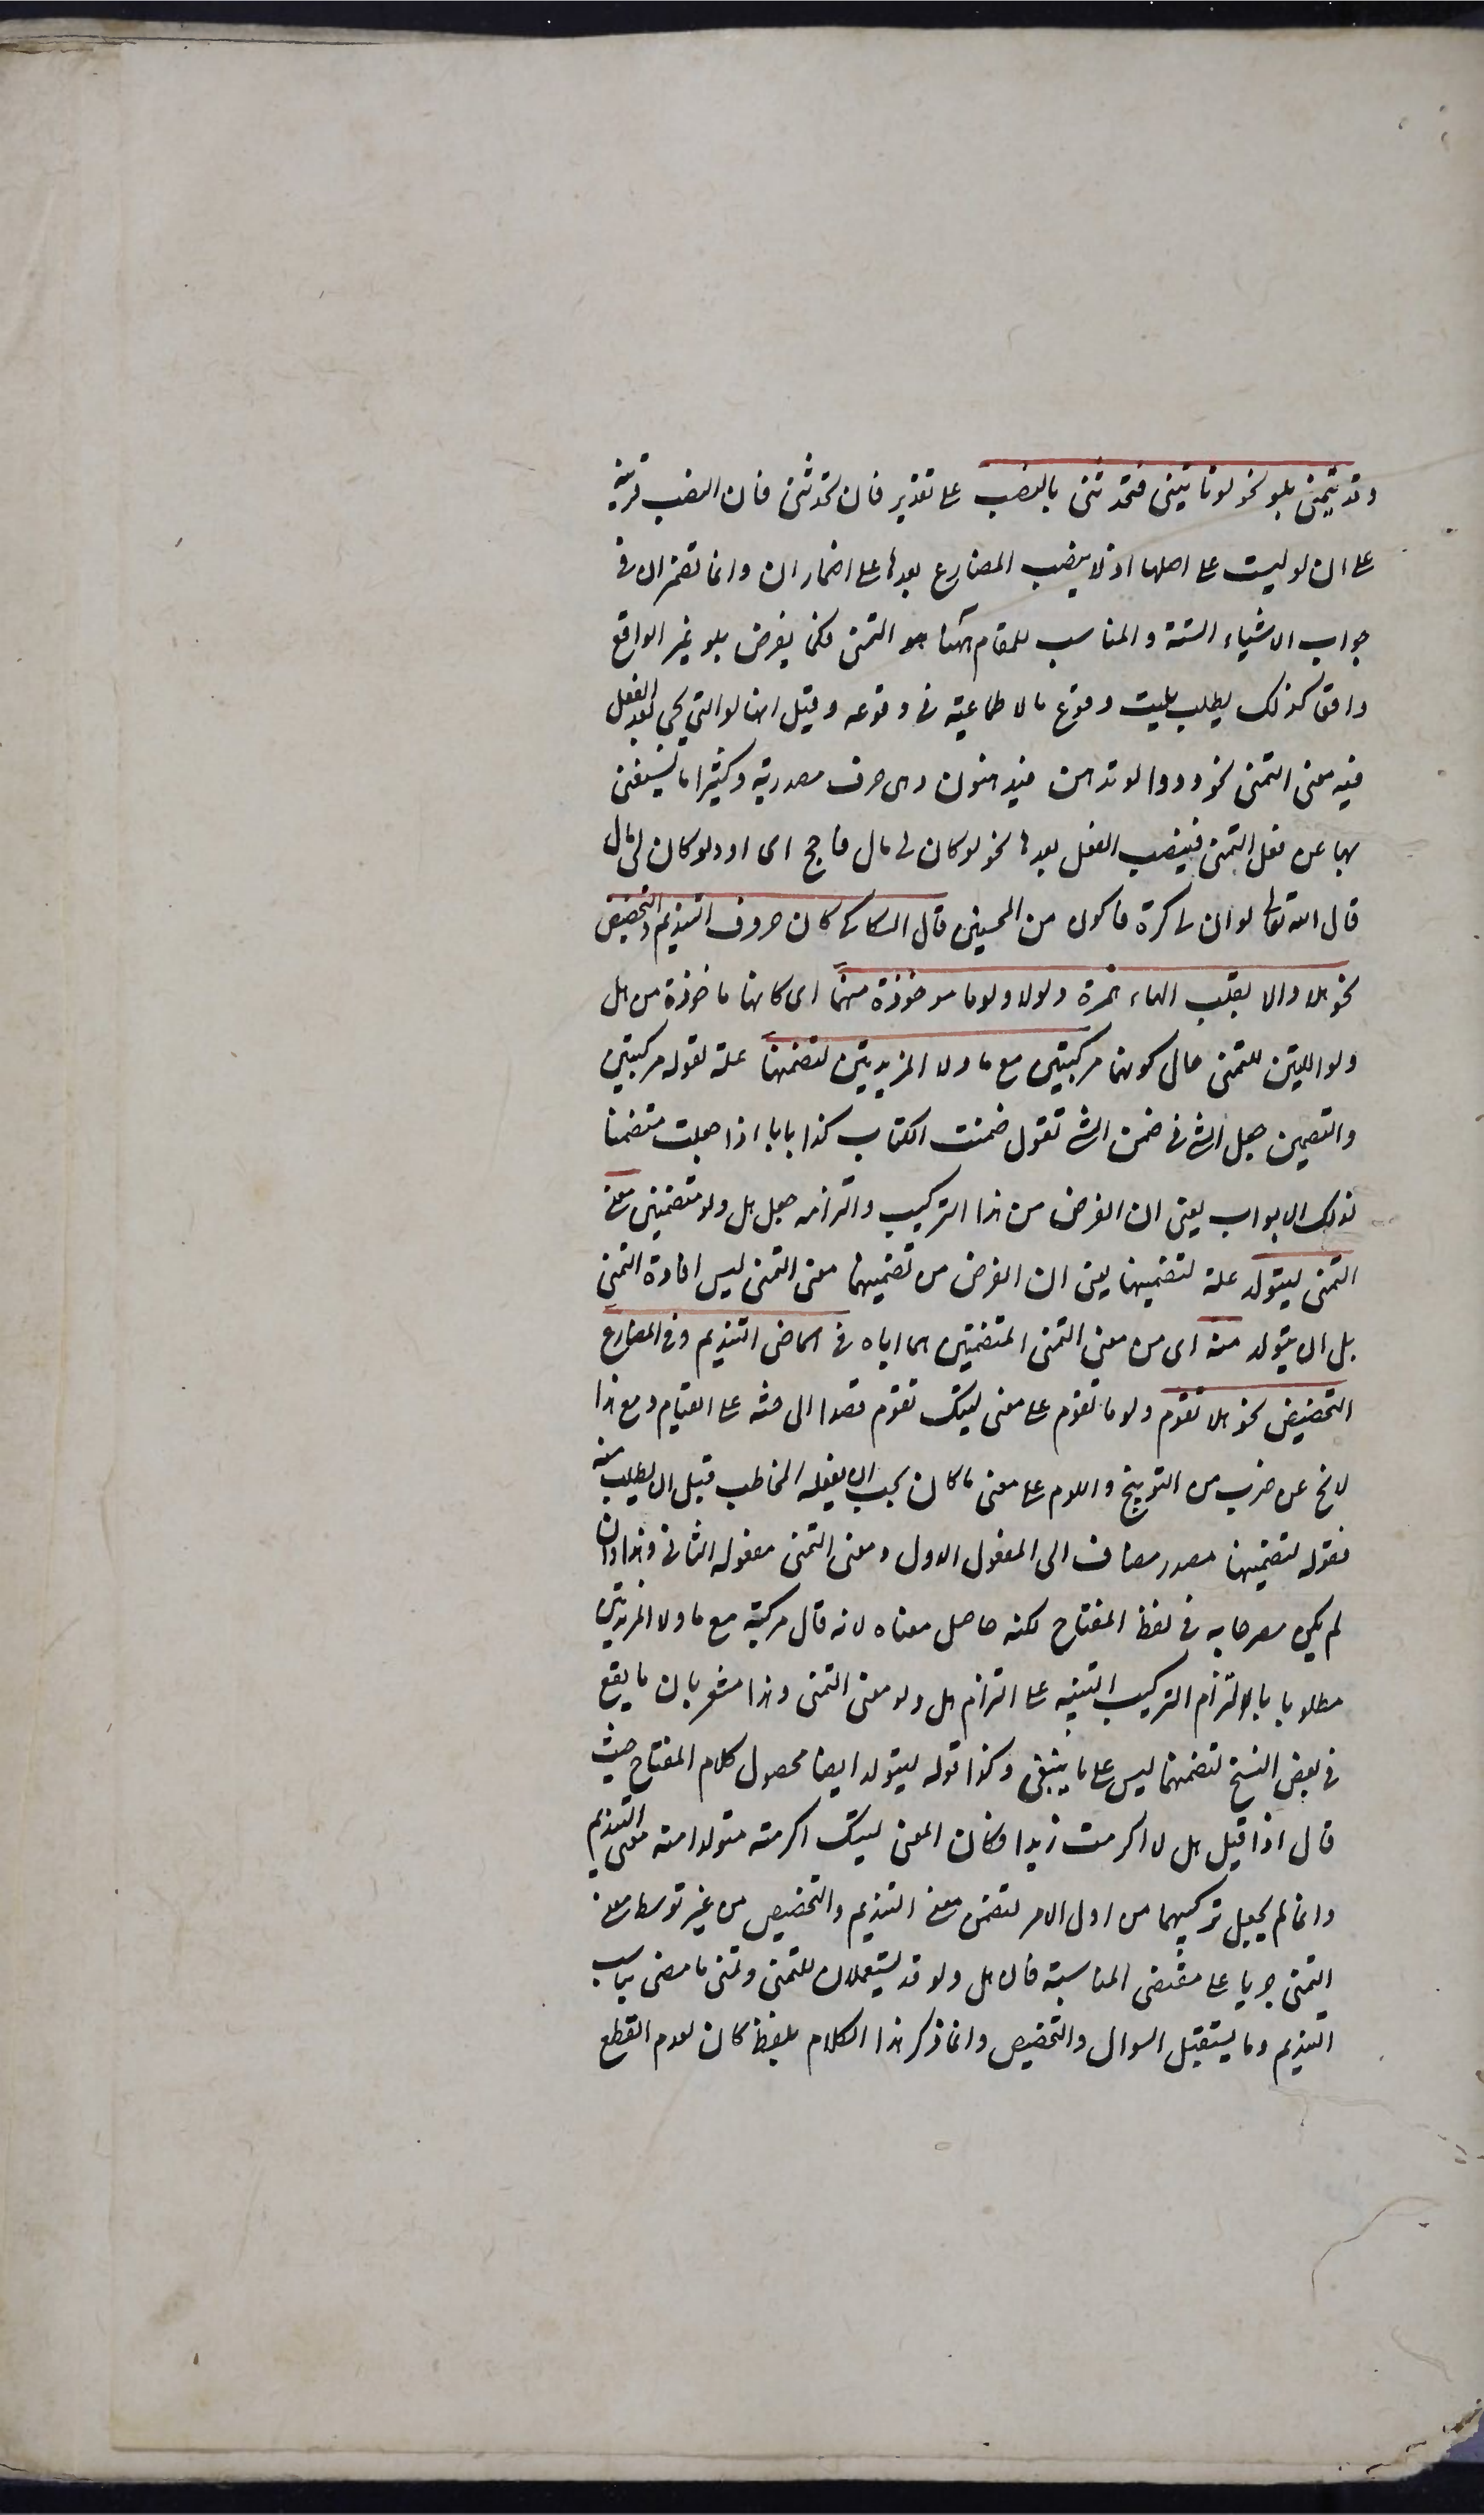 وقد يتمنى بلو نحو لو تأتينى فتحدثنى بالنصب على تقدير فان تحدثنى فان النصب قرينة
على ان لو ليست على اصلها اذ لا ينصب المضارع بعدها على اضمار ان وانما تضمر ان فى
جواب الاشياء الستة والمناسب للمقام ههنا هو التمنى فكما يفرض بلو غير الواقع
واقعا كذلك يطلب بليت وقوع ما لا طماعية فى وقوعه وقيل انها لو التى تجى بعد فعل
فيه معنى التمنى نحو ودوا لو تدهن فيدهنون وهى حرف مصدرية وكثيرا ما يستغنى
بها عن فعل التمنى فينصب الفعل بعدها نحو لو كان لى مال فاحج اى اود لو كان لى مال
قال الله تعالى لو ان لى كرة فاكون من المحسنين قال السكاكى كان حروف التنديم والتحضيض
نحو هلا والا بقلب الهاء همزة ولولا ولوما موخوذة منهما اى كانها ماخوذة من هل
ولو اللتين للتمنى حال كونهما مركبتين مع ما ولا المزيدتين لتضمنهما علة لقوله مركبتين
والتضمين جعل الشى فى ضمن الشى تقول ضمنت الكتاب كذا بابا اذا جعلت متضمنا
لذلك الابواب يعنى ان الغرض من هذا التركيب والتزامه جعل هل ولو متضمنين معنى
التمنى ليتولد علة لتضمينهما يعنى ان الغرض من تضمينهما معنى التمنى ليس افادة التمنى
بل ان يتولد منه اى من معنى التمنى المتضمنتين هما اياه فى الماضى التنديم وفى المضارع
التحضيض نحو هلا تقوم ولوما تقوم على معنى ليتك تقوم قصدا الى حثه على القيام ومع هذا
لا يخ عن ضرب من التوبيخ واللوم على معنى ما كان يجب ان يفعله المخاطب قبل ان يطلب منه
فقوله لتضمينهما مصدر مضاف الى المفعول الاول ومعنى التمنى مفعوله الثانى وهذا وان
لم يكن مصرحا به فى لفظ المفتاح لكنه حاصل معناه لانه قال مركبة مع ما ولا المزيدتين
مطلوبا بالالتزام التركيب التنبيه على التزام هل ولو معنى التمنى وهذا مشعر بان ما يقع
فى بعض النسخ لتضمنهما ليس على ما ينبغى وكذا قوله ليتولد ايضا محصول كلام المفتاح حيث
قال اذا قيل هل لا اكرمت زيدا فكان المعنى ليتك اكرمته متولدا منه معنى التنديم
وانما لم يجعل تركيبهما من اول الامر لتضمن معنى التنديم والتحضيض من غير توسط معنى
التمنى جريا على مقتضى المناسبة فان هل ولو قد يستعملان للتمنى وتمنى ما مضى يناسب
التنديم وما يستقبل السوال والتحضيض وانما ذكر هذا الكلام بلفظ كان لعدم القطع